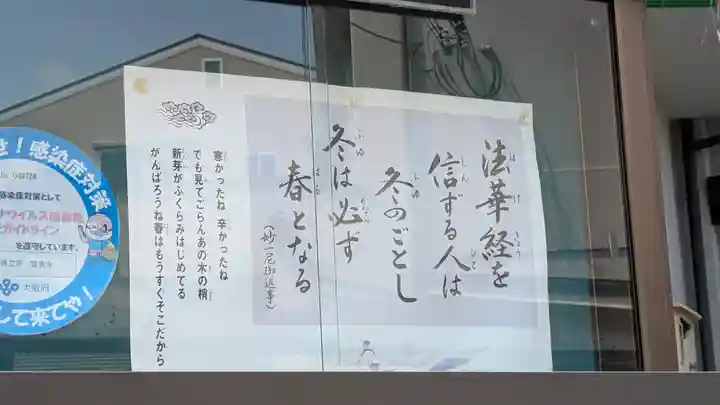 法華経を
信ずる人は
冬のごとし
冬は必ず
春となる
（妙一尼御返事）
寒かったね 辛かったね
でも見てごらんあの木の梢
新芽がふくらみはじめてる
がんばろうね春はもうすぐそこだから
せ！感染症対策
049724
感染症対策として
ウイルス感染
ガイドライン
を遵守しています。
大阪府
して来てや！